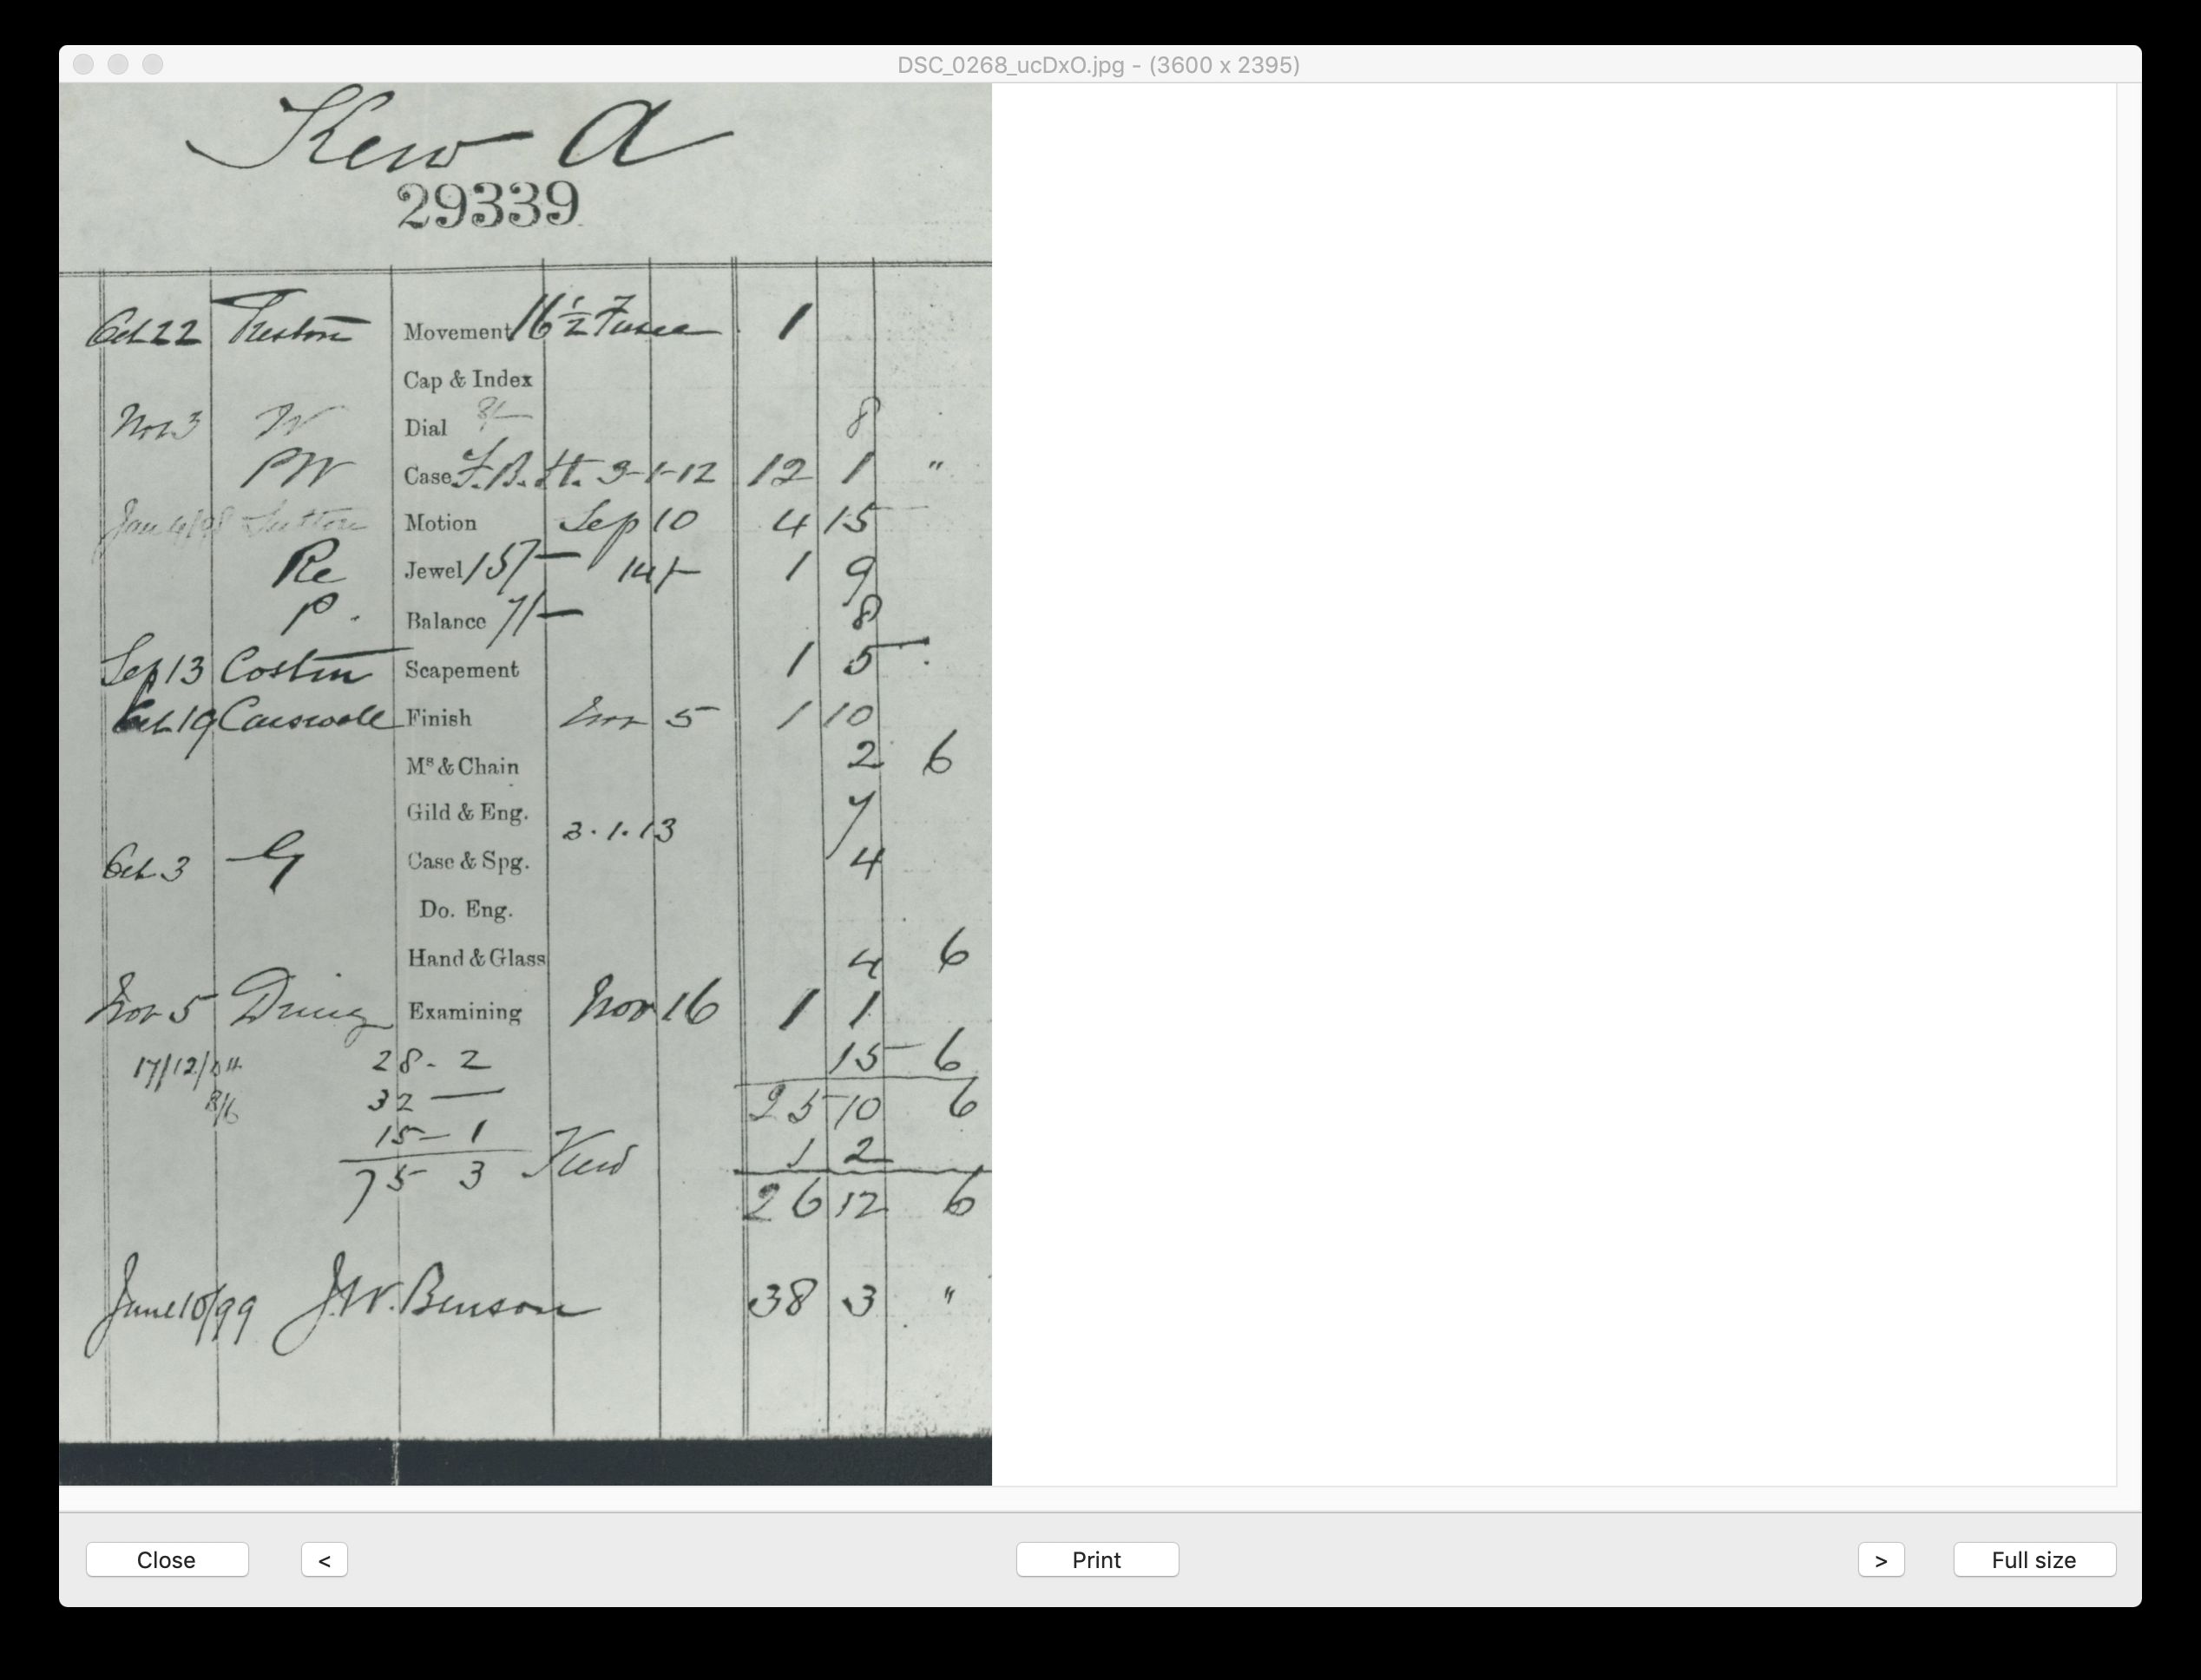 DSC_0268_ucDxO.jpg - (3600 x 2395)
Kew A
29339
Oct 22 Preston Movement 16 1/2 Fusee 1
Cap & Index
Nov 3 W Dial 8/- 8
PW Case F.B.H. 3-1-12 12 1 "
Jan 4/98 Sutton Motion Sep 10 4 15
Re Jewel 15/- 14/- 1 9
P. Balance 7/- 8
Sep 13 Costin Scapement 1 5
Oct 19 Finish Nov 5 1 10
Ms & Chain 2 6
Gild & Eng. 7
3.1.13
Oct 3 G Case & Spg. 4
Do. Eng.
Hand & Glass 4 6
Nov 5 Examining Nov 16 1 1
17/12/04 28 - 2 15 6
8/6 32 — 25 10 6
15 - 1 1 2
75 3 Kew 26 12 6
June 10/99 J.W. Benson 38 3 "
Close < Print > Full size